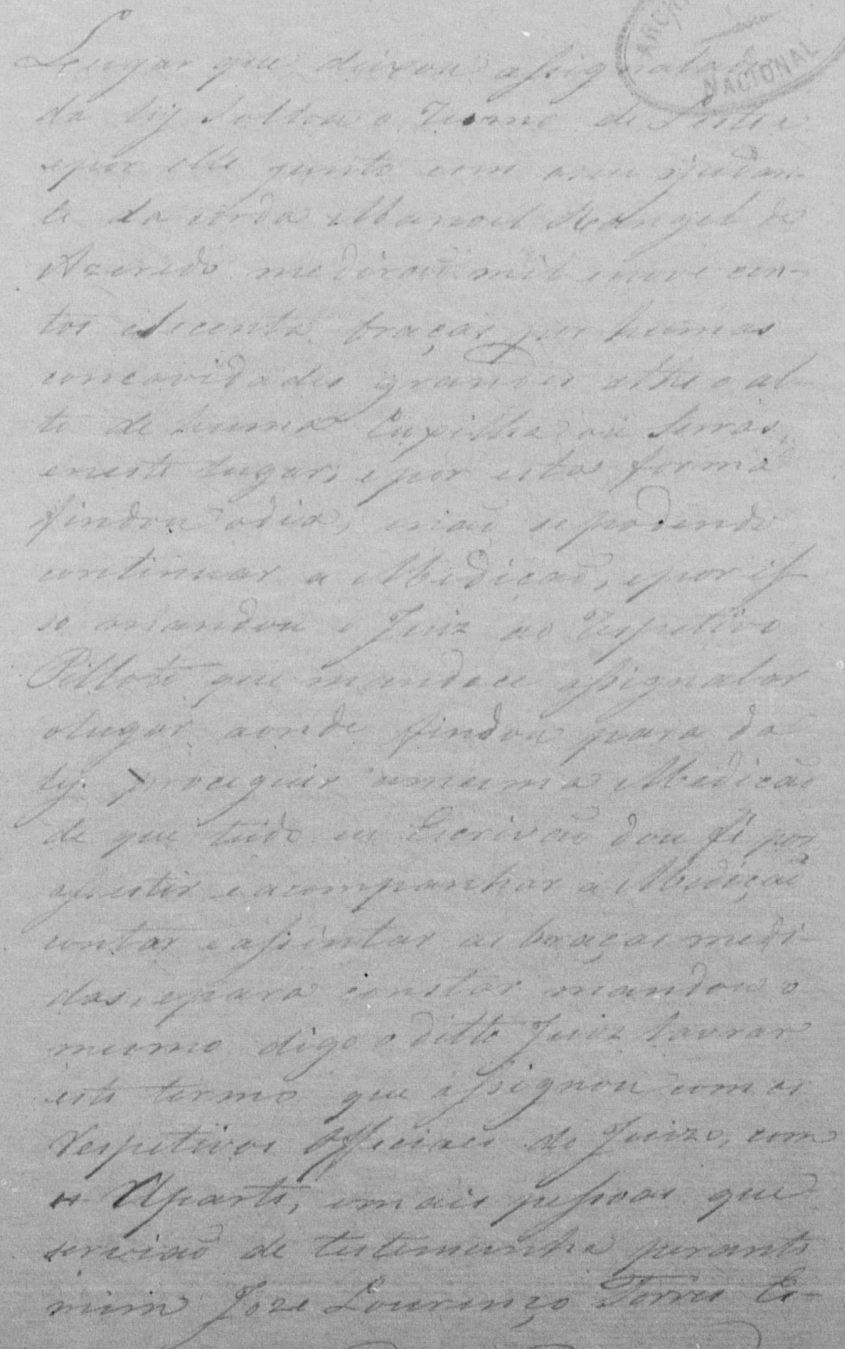 Lugar que deixou assignalado
da ly soltou o Rumo de Leste
epor elle junto com oseu ajudan-
te da corda Manoel Rangel de
Azeredo medirão mil enove cen-
tos eSecenta braças por humas
concavidades grandes athe o al-
to de huma Cuxilha ou Serras,
eneste lugar, e por esta forma
findou odia, enaõ sepodendo
continuar a Mediçaõ, epor is-
so mandou o Juiz ao Respetivo
Pilloto que mandace assignalar
olugar aonde findou para da
ly prociguir amesma Medicão
de que tudo eu Escrivão dou fé por
assistir e acompanhar a Mediçaõ
contar e assintar as braças medi-
das, epara constar mandou o
mesmo digo o ditto Juiz lavrar
este termo que assignou com os
Respetivos Officiaes do Juizo, com
a Aparte, emais pessoas que
servirão de testemunha perante
mim Joze Lourenço Torres Es-
ARCH
NACIONAL